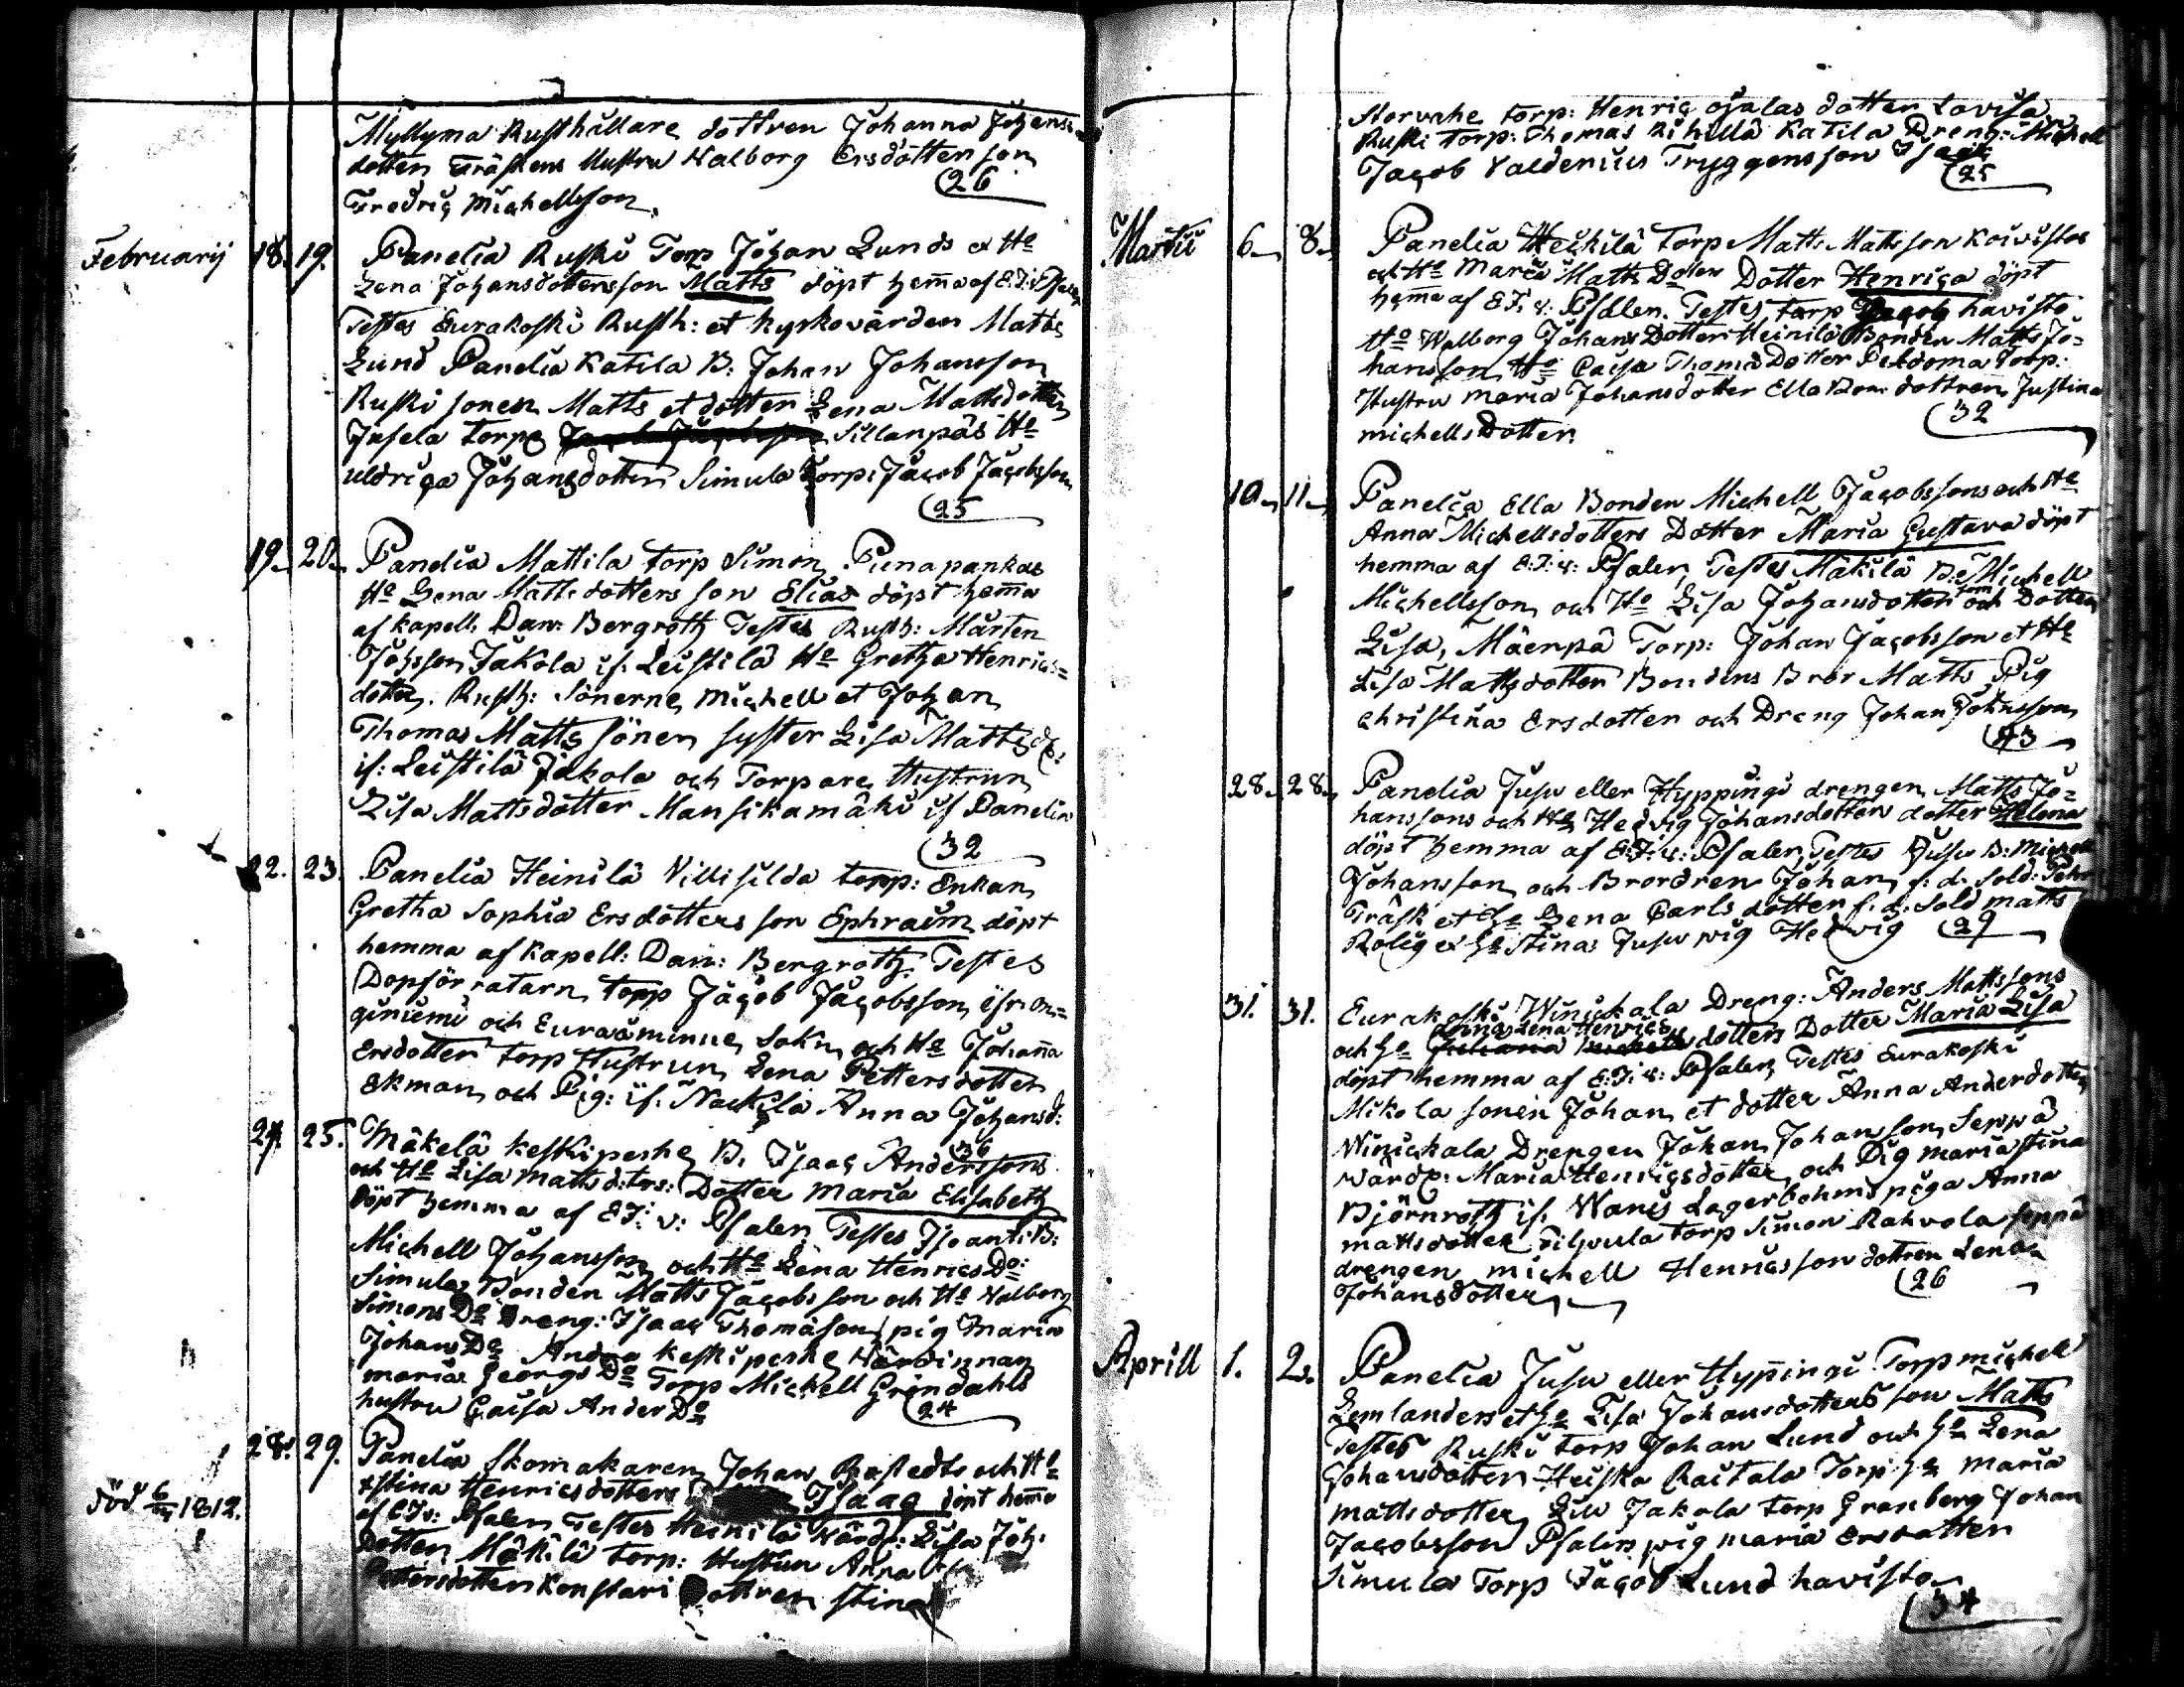 Myllyma Rusthållare dottren Johanna Johans
dotter Träskens Hustru Walborg Ersdotter son
26
Fredric Michellsson
Februarij 18. 19. Panelia Ruski Torp Johan Lunds et Ho
Lena Johansdotters son Matts döpt hemma af E: J: v: Psaler
Testes Eurakoski Rusth: et kyrkovärden Matts
Lund Panelia Katila B. Johan Johansson
Ruski sonen Matts et dotter Lena Mattsdotter
Jusela torp Sillanpäs Ho
Uldrica Johansdotter Simula Torp: Jacob Jacobsson
25
19. 20. Panelia Mattila torp Simon Punapankas
Ho Lena Matts dotters son Elias döpt hemma
af kapell: Dan: Bergroth Testes Rusth: Mårten
Johsson Jakola if. Leistilä Ho Gretha Henrics=
dotter. Rusth: Sönerne Michell et Johan
Thomas Matts sönen syster Lisa Mattsdr:
if: Leistilä Jakola och Torpare Hustrun
Lisa Mattsdotter Mansikamäki if Panelia
32
22. 23. Panelia Heinilä Villisilda torp: Enkan
Gretha Sophia Ersdotters son Ephraim döpt
hemma af kapell: Dan: Bergroth Testes
Dopförratarn torp Jacob Jacobsson ifrån
giniemi och Euraåminne Sokn och Ho Johanna
Ersdotter torp Hustrun Lena Pettersdotter
Ekman och Pig: if. Nackila Anna Johansd:
36
24. 25. Mäkelä keskipeshe B. Isaac Anderssons
och Ho Lisa Matts dotrs: Dotter Maria Elisabeth
döpt hemma af E J: v: Psaler Testes Isoanti B:
Michell Johansson och Ho Lena Henrics Do:
Simula Bonden Matts Jacobsson och Ho Walborg
Simons Do Dreng: Isaac Thomasson pig Maria
Johans Do keskipeske Wärdinnan
maria Georgs Do Torp Michell Gröndahls
hustru Caisa Anders Do
24
28. 29. Panelia Skomakaren Johan och Ho
Stina Henricsdotters Isaac döpt hemma
död 6/ 1812.
af E J v: Psaler Testes Heinilä Wärd: Lisa Joh:
dotter Mäkilä torp: Hustrun Anna
Pettersdotter Konstari Dottren Stina
torp: Henric Ojalas dotter Lovisa
Ruski torp: Thomas Katila Dreng: Michell
Jacob Valdenius Tryggensson Isaac
25
Martii 6. 8. Panelia Heikilä Torp Matts Mattsson Koivistos
och Ho Maria Matts Doters Dotter Henrica döpt
hemma af E J: v: Psalen. Testes torp Jacob havisto
Ho Walborg Johans Dotter Heinilä Bonden Matts Jo=
hansson Ho Caisa Thoms Dotter Peldoma Torp:
Hustru Maria Johansdotter Ella Bon: dottren Justina
32
michells Dotter
10. 11. Panelia Ella Bonden Michell Jacobssons och Ho
Anna Michellsdotters Dotter Maria Gustava döpt
hemma af E: J: v: Psaler Testes Mäkilä B: Michell
Michellsson och Ho Lisa Johansdotter och Dotter
Lisa, Mäenpä Torp: Johan Jacobsson et Ho
Lisa Mattsdotter Bondens Bror Matts Pig
Christina Ersdotter och Dreng Johan Johnsson
43
28. 28. Panelia Jusu eller Hyppingi drengen Matts Jo=
hanssons och Ho Hedvig Johansdotters dotter Helena
döpt hemma af E: J: v: Psaler, Testes Jusu B: Michell
Johansson och Brordren Johan f: d: Sold: Pehr
Träsk et Ho Lena Carls dotter f: d: Sold matts
Rolig et Ho Stina Jusu pig Hedvig
29
31. 31. Eurakoski Winickala Dreng: Anders Mattssons
och Ho Lena Henrics dotters Dotter Maria Lisa
döpt hemma af E: J: v: Psaler, Testes Eurakoski
Mikola sonen Johan et dotter Anna Anderdotter
Winickala Drengen Johan Johansson Seppä
wärd: Maria Henricsdotter och Pig maria Stina
Björnroth if. Lagerbohms piga Anna
mattsdotter torp Simon Rahvola seppä
drengen michell Henricsson dottren Lena
26
Johansdotter
Aprill 1. 2. Panelia Jusu eller Hyppingi Torp michel
Lemlanders et Ho Lisa Johansdotters son Matts
Testes Ruski torp Johan Lund och Ho Lena
Johansdotter Heiska Raitala Torp Ho maria
mattsdotter Jakola torp Granberg Johan
Jacobsson Psalers pig maria Ersdotter
Simula Torp Jacob Lund havisto
34